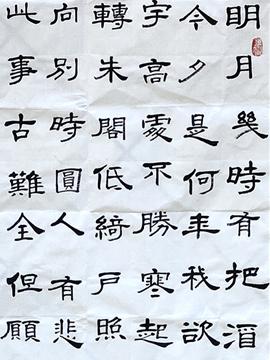 明月幾時有把酒
今夕是何年我欲
宇高處不勝寒起
轉朱閣低綺戶照
向別時圓人有悲
此事古難全但願